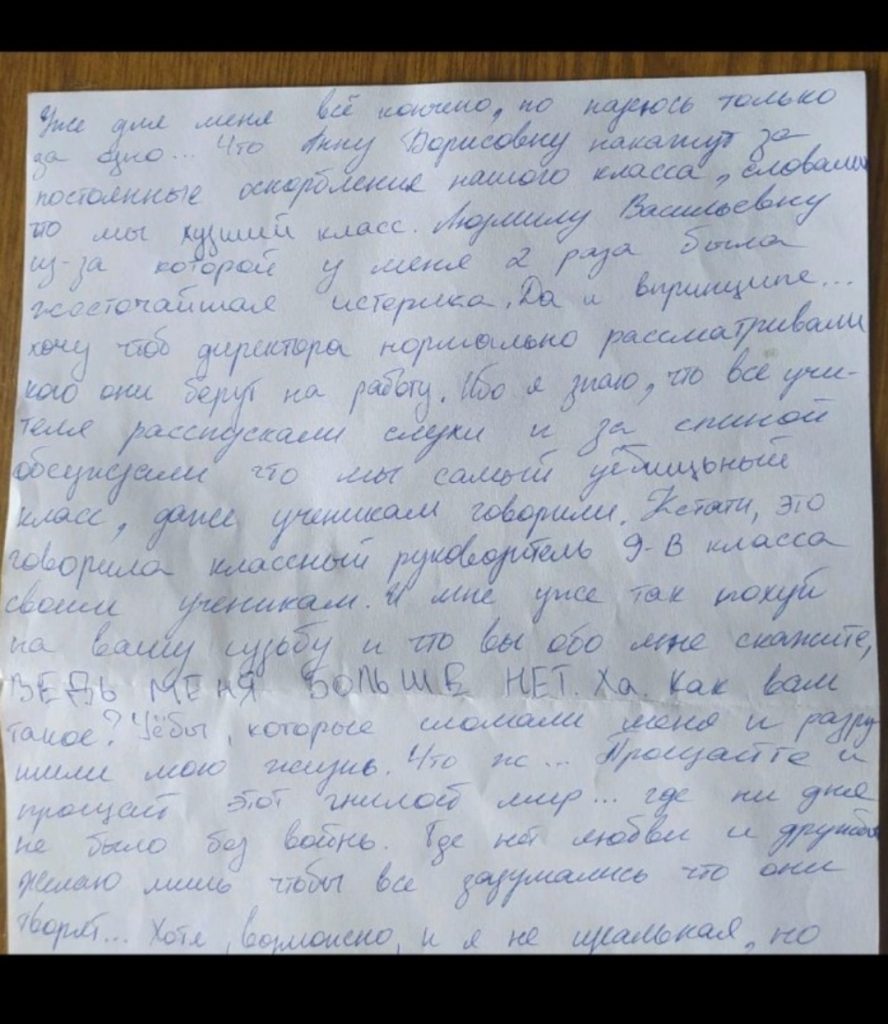 Уже для меня всё кончено, но надеюсь только
за одно... Что Анну Борисовну накажут за
постоянные оскорбления нашого класса, словами
что мы худший класс. Людмилу Васильевну
из-за которой у меня 2 раза была
жесточайшая истерика. Да и впринципе...
хочу чтоб директора нормально рассматривали
кого они берут на работу. Ибо я знаю, что все учи-
теля расспускали слухи и за спиной
обсуждали что мы самый убищьный
класс, даже ученикам говорили. Кстати, это
говорила классный руководитель 9-В класса
своим ученикам. И мне уже так похуй
на вашу судьбу и что вы обо мне скажите,
ВЕДЬ МЕНЯ БОЛЬШЕ НЕТ. Ха. Как вам
такое? Уёбы, которые сломали меня и разру
шили мою жизнь. Что ж... Прощайте и
прощай этот гнилой мир... где ни дня
не было без войны. Где нет любви и дружбы
желаю лишь чтобы все задумались что они
творят... Хотя, возможно, и я не идеальная, но